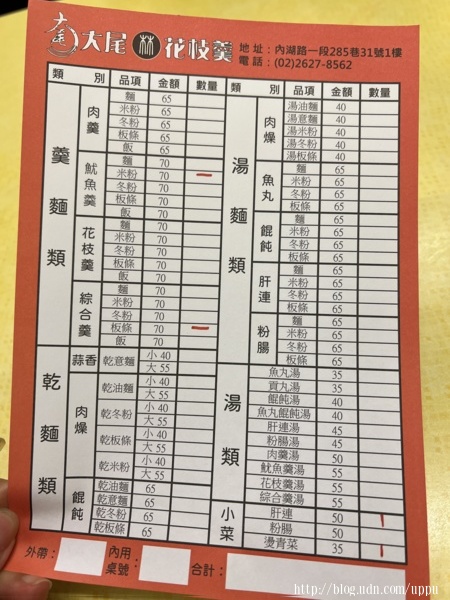 大尾 林 花枝羹
地址：內湖路一段285巷31號1樓
電話：(02)2627-8562
類 別 品項 金額 數量
羹麵類
肉羹
麵 65
米粉 65
冬粉 65
板條 65
飯 65
魷魚羹
麵 70
米粉 70 一
冬粉 70
板條 70
飯 70
花枝羹
麵 70
米粉 70
冬粉 70
板條 70
飯 70
綜合羹
麵 70
米粉 70
冬粉 70
板條 70 一
飯 70
乾麵類
蒜香
乾意麵 小 40
大 55
肉燥
乾油麵 小 40
大 55
乾冬粉 小 40
大 55
乾板條 小 40
大 55
乾米粉 小 40
大 55
餛飩
乾油麵 65
乾意麵 65
乾冬粉 65
乾板條 65
類 別 品項 金額 數量
湯麵類
肉燥
湯油麵 40
湯意麵 40
湯米粉 40
湯冬粉 40
湯板條 40
魚丸
麵 65
米粉 65
冬粉 65
板條 65
餛飩
麵 65
米粉 65
冬粉 65
板條 65
肝連
麵 65
米粉 65
冬粉 65
板條 65
粉腸
麵 65
米粉 65
冬粉 65
板條 65
湯類
魚丸湯 35
貢丸湯 35
餛飩湯 40
魚丸餛飩湯 40
肝連湯 45
粉腸湯 45
肉羹湯 50
魷魚羹湯 55
花枝羹湯 55
綜合羹湯 55
小菜
肝連 50 |
粉腸 50
燙青菜 35 |
外帶： 內用桌號： 合計：
http://blog.udn.com/uppu